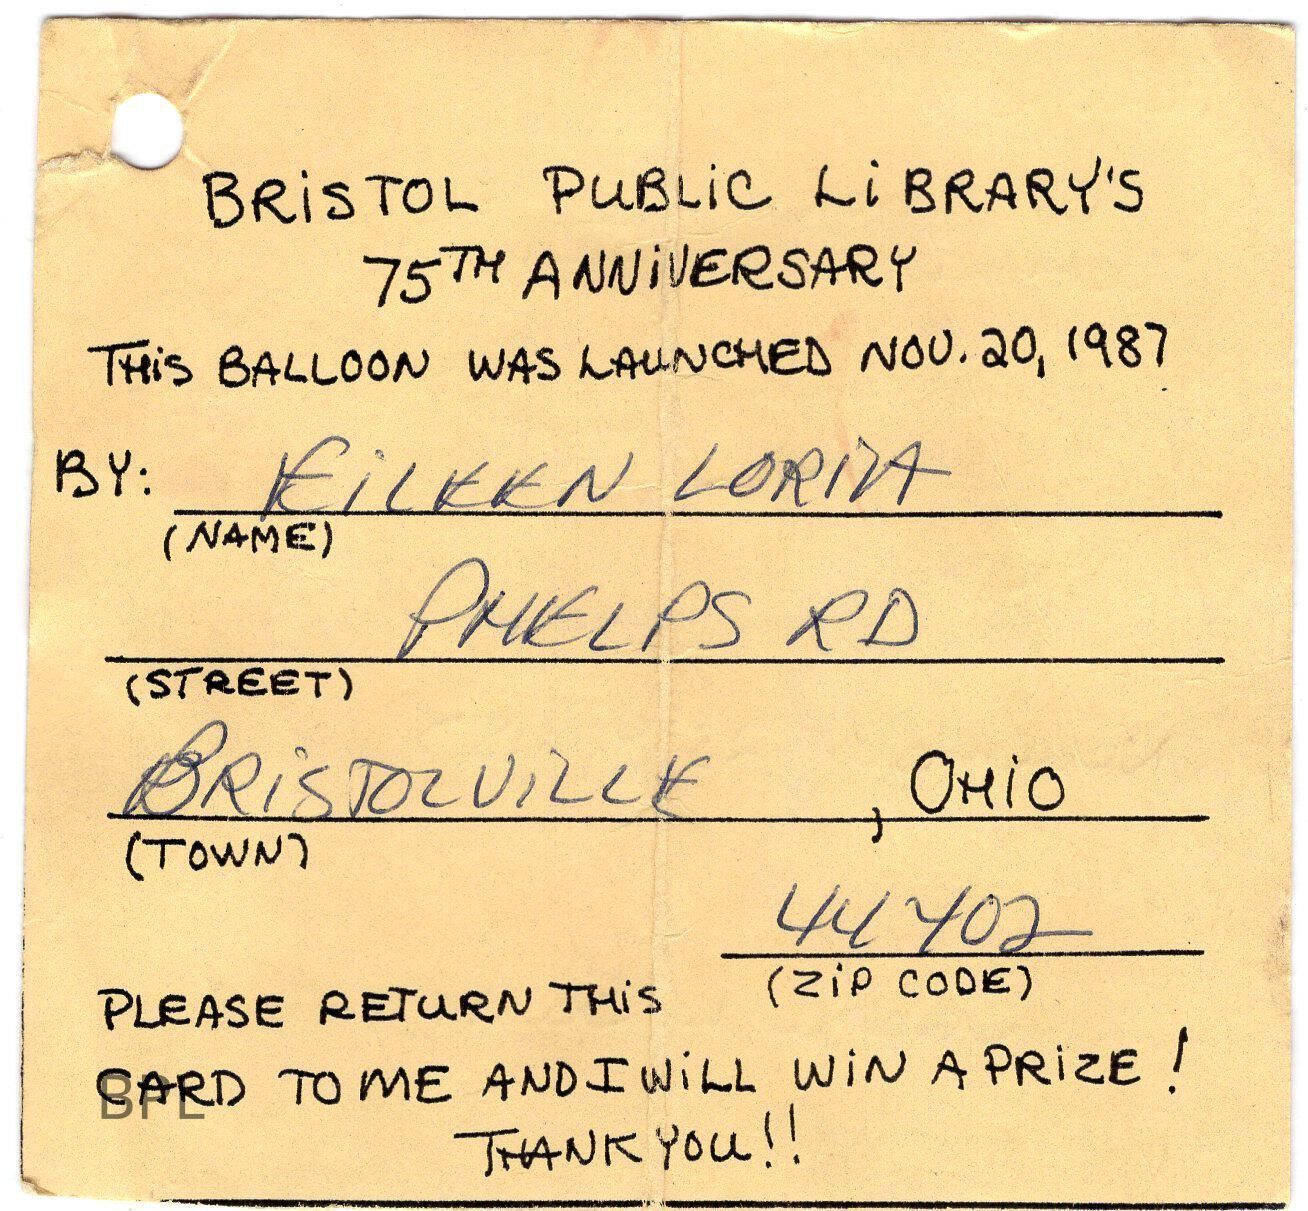 BRiSTOL PUBLiC LiBRARY'S
75TH ANNiVERSARY
THiS BALLOON WAS LAUNCHED NOV. 20, 1987
BY: EiLEEN LORiTA
(NAME)
PHELPS RD
(STREET)
BRiSTOLViLLE, OHiO
(TOWN)
44402
(ZiP CODE)
PLEASE RETURN THiS
CARD TO ME AND I WiLL WiN A PRiZE!
BPL
THANK YOU!!